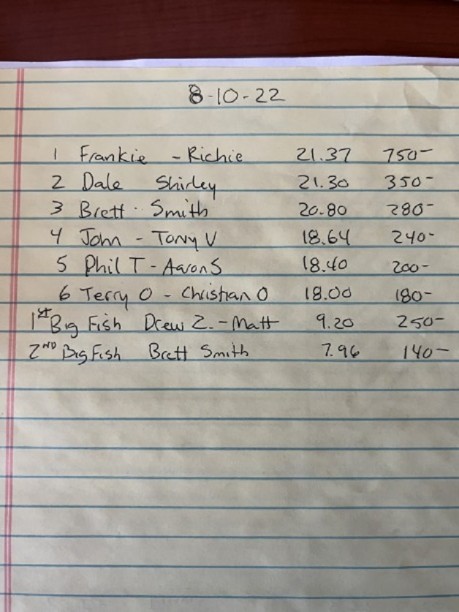 8-10-22
1 Frankie - Richie 21.37 750-
2 Dale Shirley 21.30 350-
3 Brett Smith 20.80 280-
4 John - Tony V 18.64 240-
5 Phil T - Aaron S 18.40 200-
6 Terry O - Christian O 18.00 180-
1st Big Fish Drew Z. - Matt 9.20 250-
2ND Big Fish Brett Smith 7.96 140-